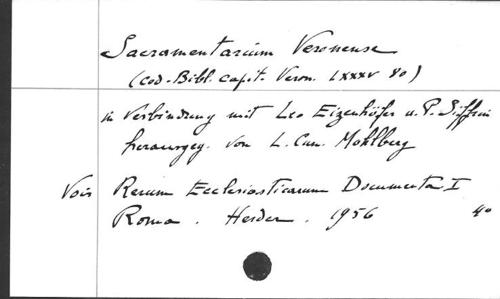 Sacramentarium Veronense
(cod. Bibl. capit. Veron. LXXXV 80)
in Verbindung mit Leo Eizenhöfer u. P. Siffrin
herausgeg. von L. Cun. Mohlberg
Vois Rerum Ecclesiasticarum Documenta I
Roma . Herder . 1956 4°